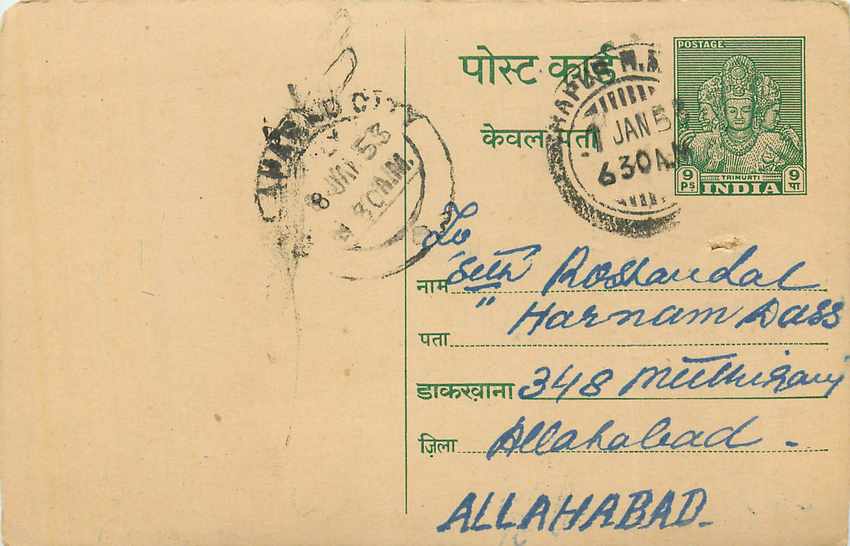 पोस्ट कार्ड
केवल पता
POSTAGE
9 Ps
TRIMURTI
INDIA
9 पा
HAPUR
7 JAN 53
6 30 A.M.
CITY
8 JAN 53
30 A.M.
To
नाम Seth Roshandal
" Harnam Dass
पता
डाकखाना 348 Mutthiganj
ज़िला Allahabad -
ALLAHABAD.